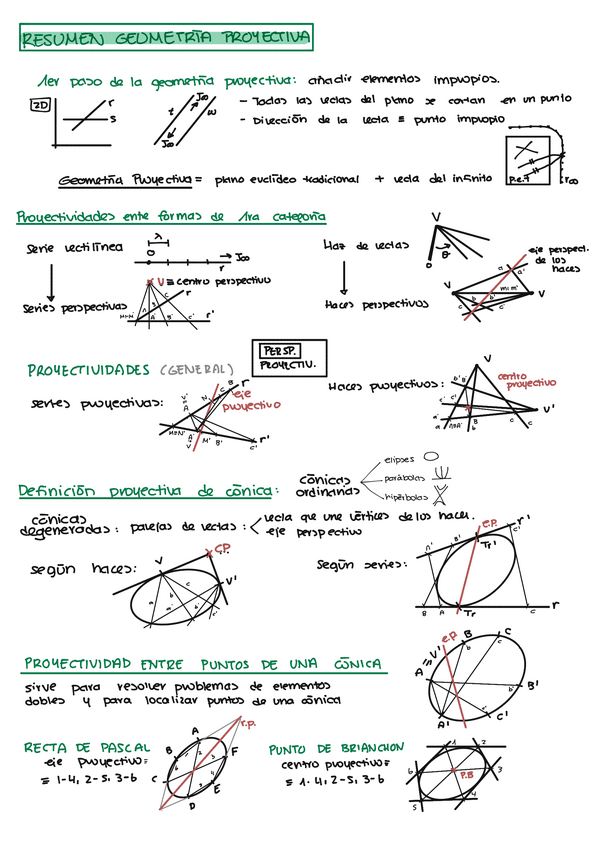 RESUMEN GEOMETRÍA PROYECTIVA
1er paso de la geometría proyectiva: añadir elementos impropios.
2D
r
s
t
J∞
w
J∞
- Todas las rectas del plano se cortan en un punto
- Dirección de la recta ≡ punto impropio
Geometría Proyectiva = plano euclídeo tradicional + recta del infinito
r∞
Proyectividades entre formas de 1ra categoría
Serie rectilínea
λ
O
J∞
r
Haz de rectas
V
θ
eje perspect.
de los
haces
V ≡ centro perspectivo
Series perspectivas
r
r'
Haces perspectivos
V
V
PERSP.
PROYECTIV.
PROYECTIVIDADES (GENERAL)
series proyectivas:
r
eje
proyectivo
r'
Haces proyectivos:
V
centro
proyectivo
V'
Definición proyectiva de cónica:
cónicas
ordinarias
elipses
parábolas
hipérbolas
cónicas
degeneradas: parejas de rectas:
recta que une vértices de los haces.
eje perspectivo
según haces:
V
C.P.
V'
Según series:
e.p.
r'
Tr'
B
A
Tr
C
r
PROYECTIVIDAD ENTRE PUNTOS DE UNA CÓNICA
sirve para resolver problemas de elementos
dobles y para localizar puntos de una cónica
A ≡ V'
e.p.
B
C
B'
A'
C'
RECTA DE PASCAL
eje proyectivo=
≡ 1-4, 2-5, 3-6
r.p.
A
B
F
C
E
D
PUNTO DE BRIANCHON
centro proyectivo=
≡ 1-4, 2-5, 3-6
1
2
3
4
5
6
P.B